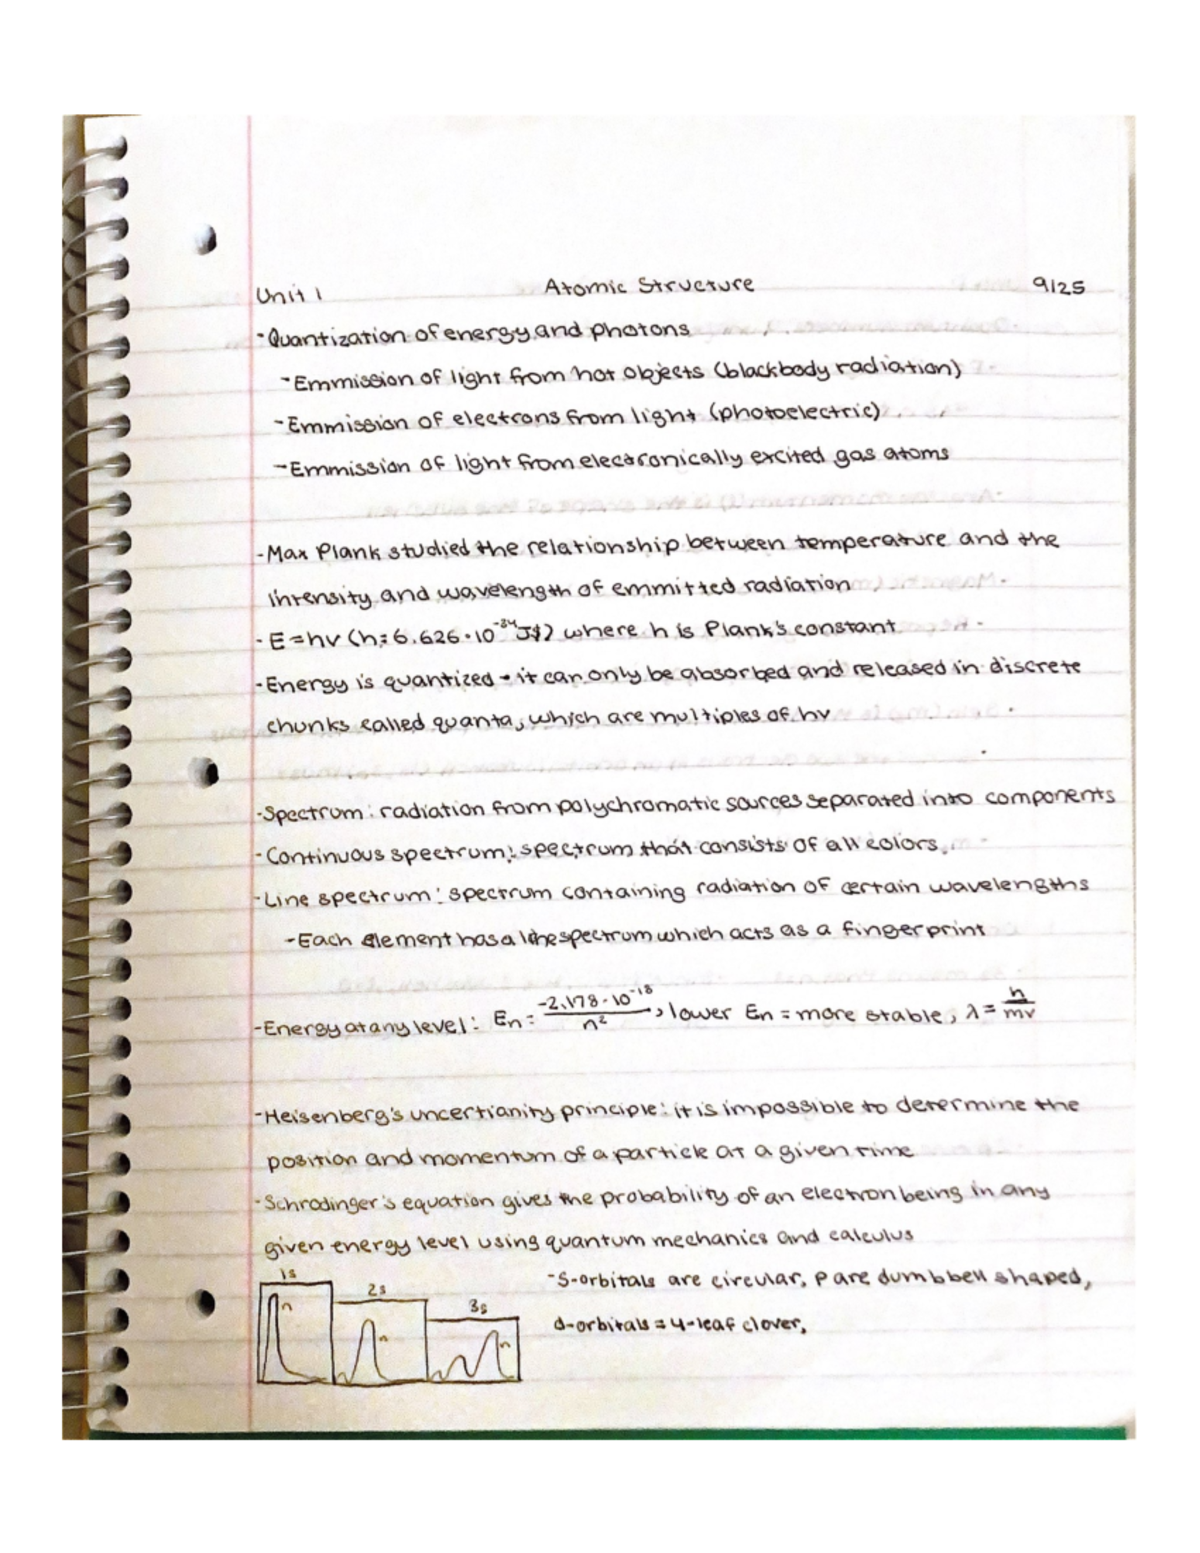 Unit 1 Atomic Structure 9/25
-Quantization of energy and photons
-Emmission of light from hot objects (blackbody radiation)
-Emmission of electrons from light (photoelectric)
-Emmission of light from electronically excited gas atoms
-Max Plank studied the relationship between temperature and the
intensity and wavelength of emmitted radiation
-E=hv (h=6.626·10⁻³⁴ J$) where h is Plank's constant
-Energy is quantized - it can only be absorbed and released in discrete
chunks called quanta, which are multiples of hv
-Spectrum: radiation from polychromatic sources separated into components
-Continuous spectrum: spectrum that consists of all colors.
-Line spectrum: spectrum containing radiation of certain wavelengths
-Each element has a line spectrum which acts as a fingerprint
-Energy at any level: En = -2.178·10⁻¹⁸/n², lower En = more stable, λ = h/mv
-Heisenberg's uncertianity principle: it is impossible to determine the
position and momentum of a particle at a given time
-Schrodinger's equation gives the probability of an electron being in any
given energy level using quantum mechanics and calculus
1s 2s 3s
n n n
-S-orbitals are circular, P are dumbbell shaped,
d-orbitals = 4-leaf clover,